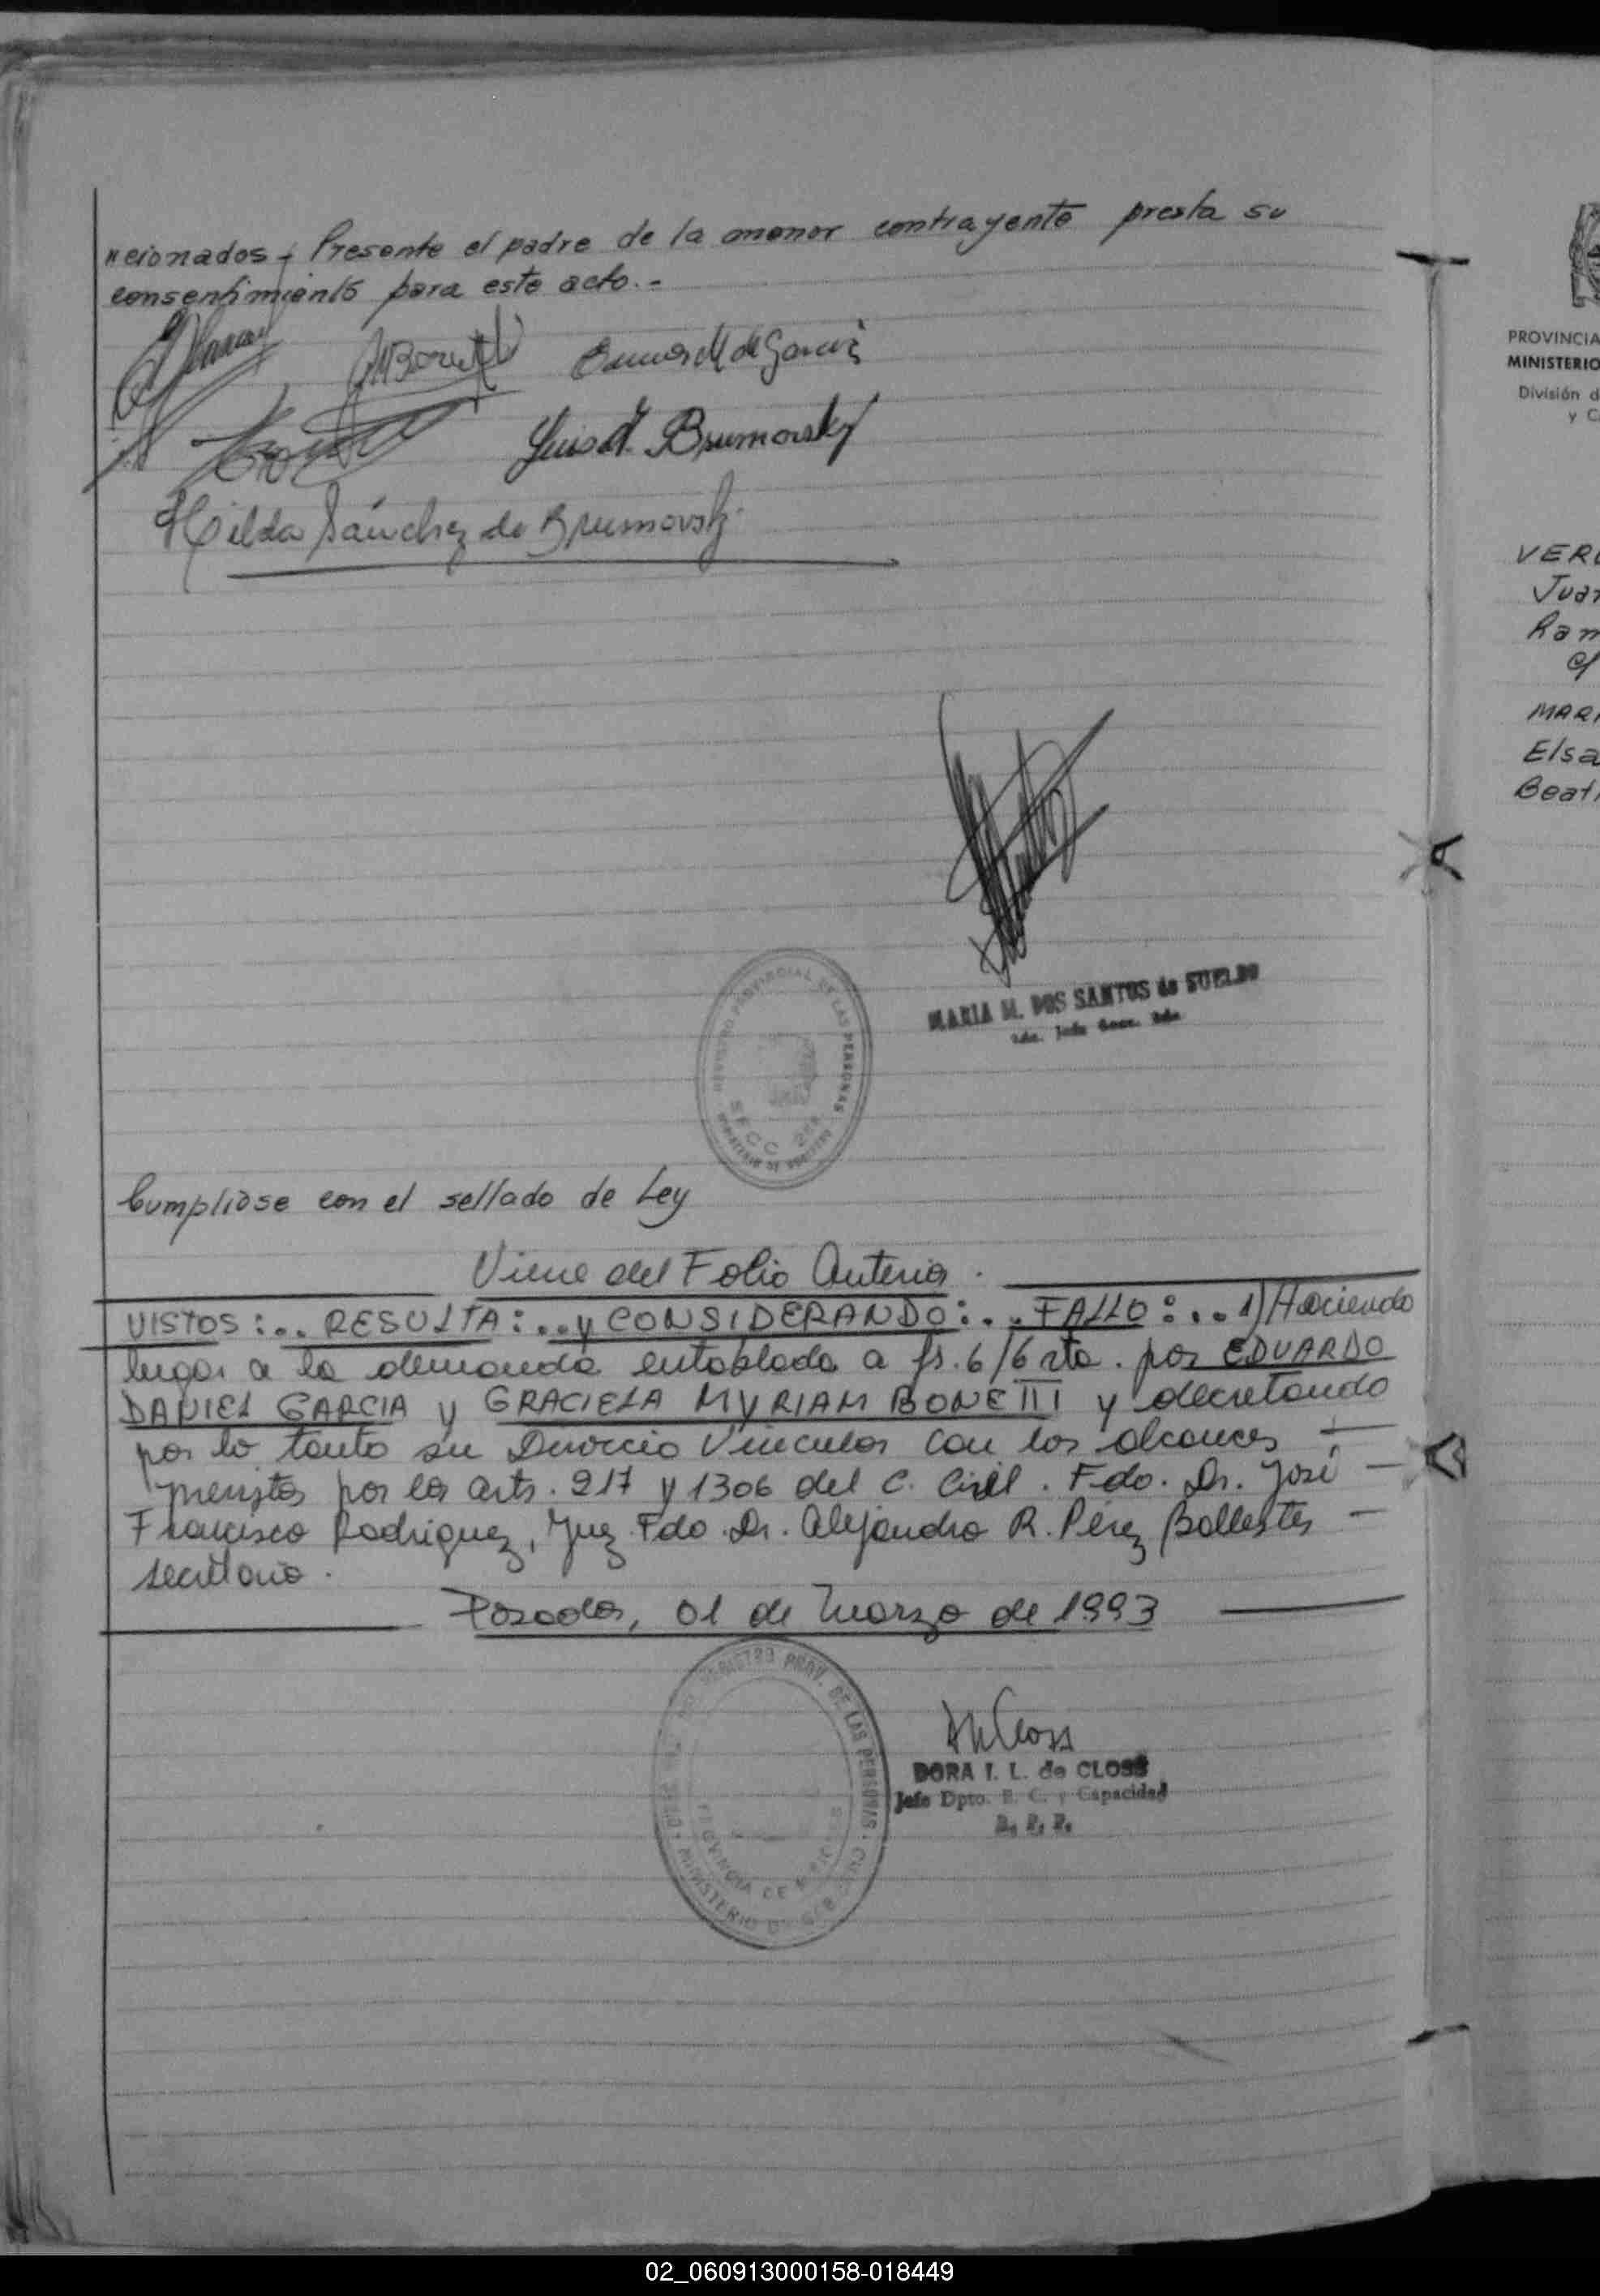 ncionados - Presente el padre de la menor contrayente presta su
consentimiento para este acto.-
Luis A. Brumovsky
Hilda Sánchez de Brumovsky
MARIA M. DOS SANTOS de SUELDO
REGISTRO PROVINCIAL DE LAS PERSONAS
MINISTERIO DE GOBIERNO
Cumplióse con el sellado de Ley
Viene del Folio Anterior.
VISTOS:.. RESULTA:.. y CONSIDERANDO:.. FALLO:.. 1) Haciendo
lugar a la demanda entablada a fs. 6/6 vta. por EDUARDO
DANIEL GARCIA y GRACIELA MYRIAM BONETTI y decretando
por lo tanto su Divorcio Vincular con los alcances
previstos por los arts. 217 y 1306 del C. Civil. Fdo. Dr. José
Francisco Rodriguez, Juez. Fdo. Dr. Alejandro R. Pérez Ballester
secretario.
Posadas, 01 de Marzo de 1993
REGISTRO PROV. DE LAS PERSONAS
PROVINCIA DE MISIONES
DORA I. L. de CLOSS
Jefe Dpto. E. C. y Capacidad
R. P. P.
PROVINCIA
MINISTERIO
División d
y C
Juan
Ram
MARI
Elsa
Beat
02_060913000158-018449